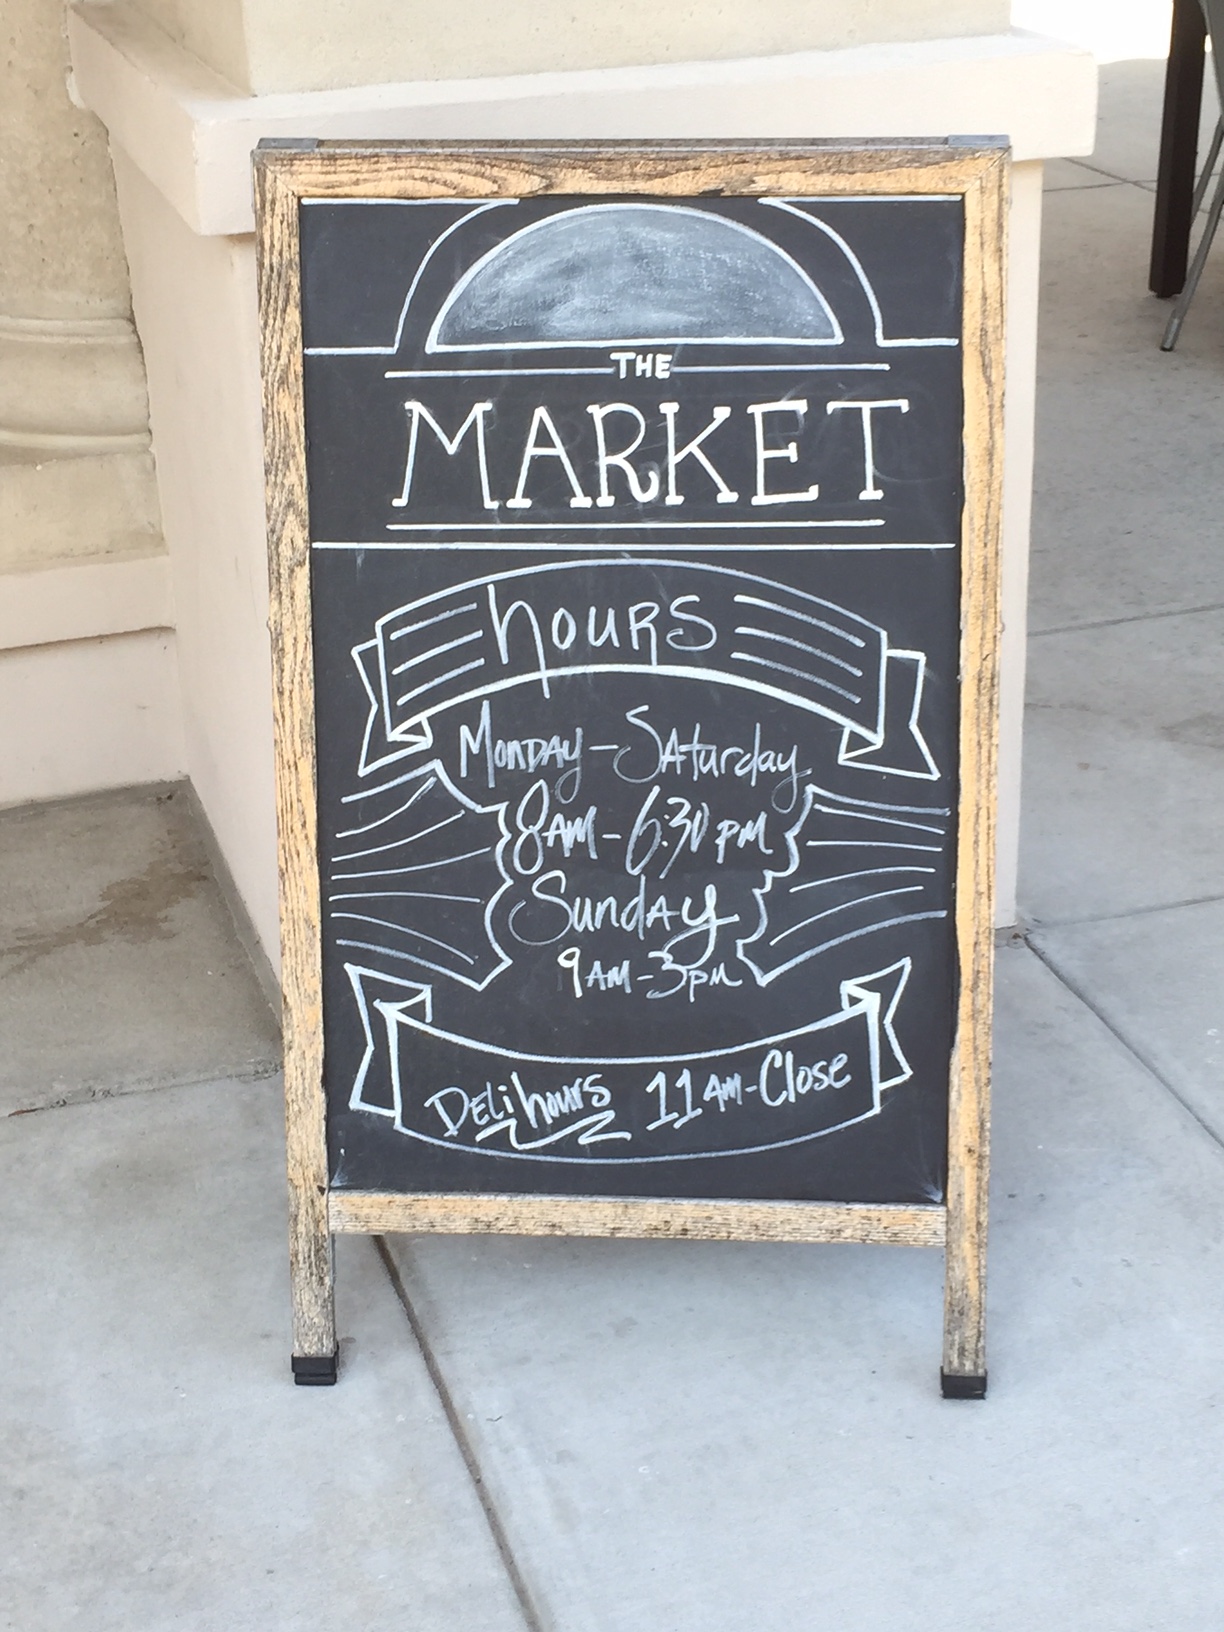 THE
MARKET
hours
Monday - Saturday
8AM - 6:30 PM
Sunday
9AM - 3PM
Deli hours 11AM - Close